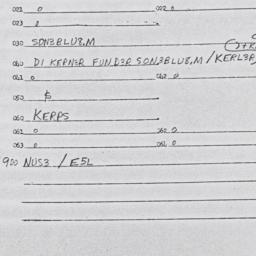 021 0 022 0
023 0
030 SON3BLU8,M
040 DI KERN3R FUN D3R SON3BLU8,M / KERL3R,
041 0 042 0
050 $
060 KERPS
061 0 062 0
063 0 064 0
900 NUS3 / E5L